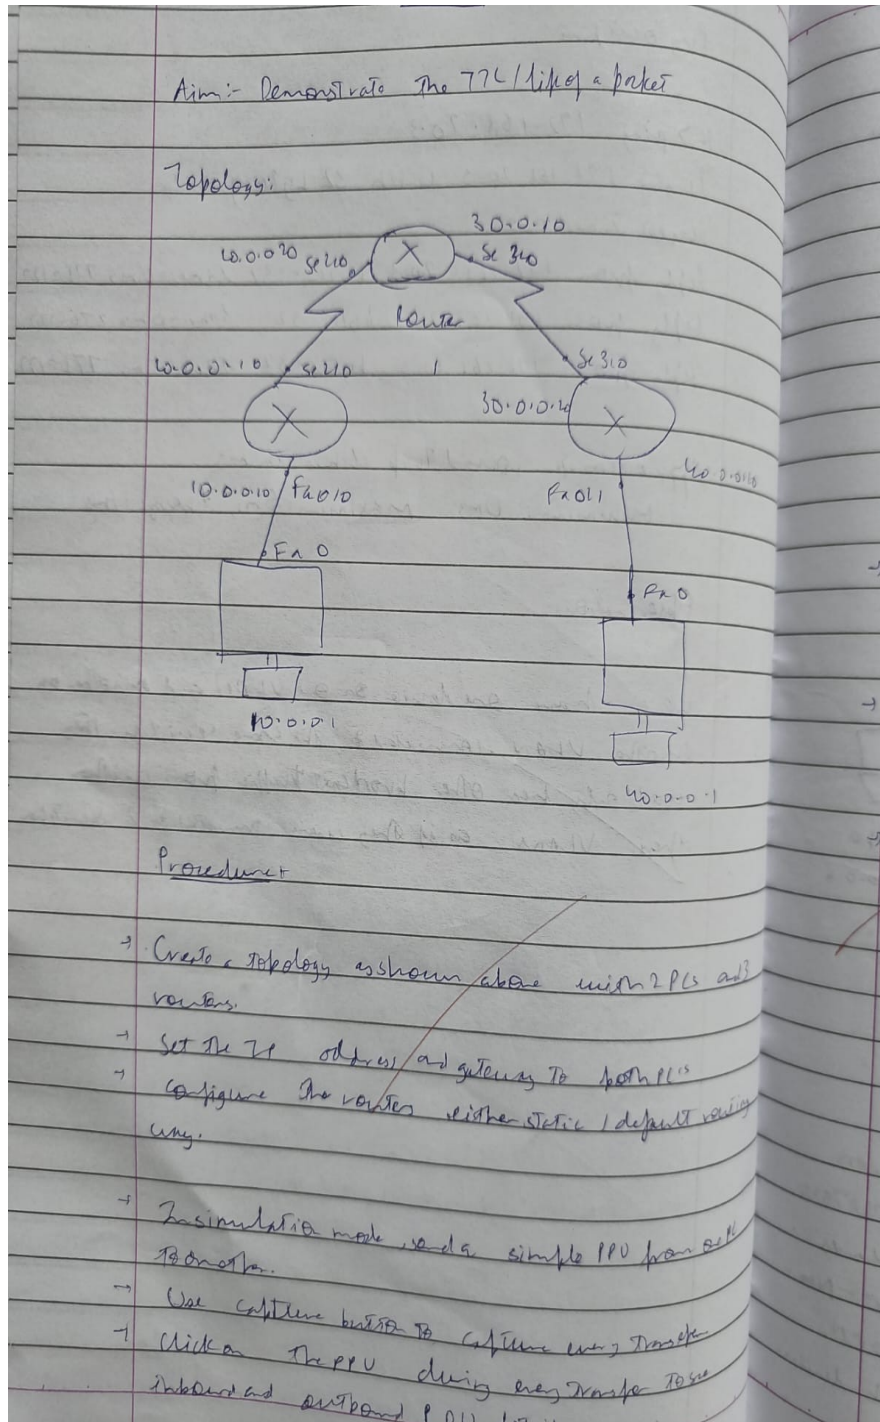 Aim:- Demonstrate the TTL/life of a packet
Topology:
30.0.0.10
20.0.0.20 Se2/0 X Se 3/0
Router
20.0.0.10 Se2/0 1 Se3/0
30.0.0.20
X X
10.0.0.10 Fa0/0 Fa0/1 40.0.0.10
Fa 0
Fa 0
10.0.0.1
40.0.0.1
Procedure:
→ Create a topology as shown above with 2 PCs and 3
routers.
→ Set the IP address and gateway to both PC's
→ Configure the routers either static / default routing
way.
→ In simulation mode, send a simple PDU from one PC
to another.
→ Use capture button to capture every transfer
→ Click on the PDU during every transfer to see
inbound and outbound PDU